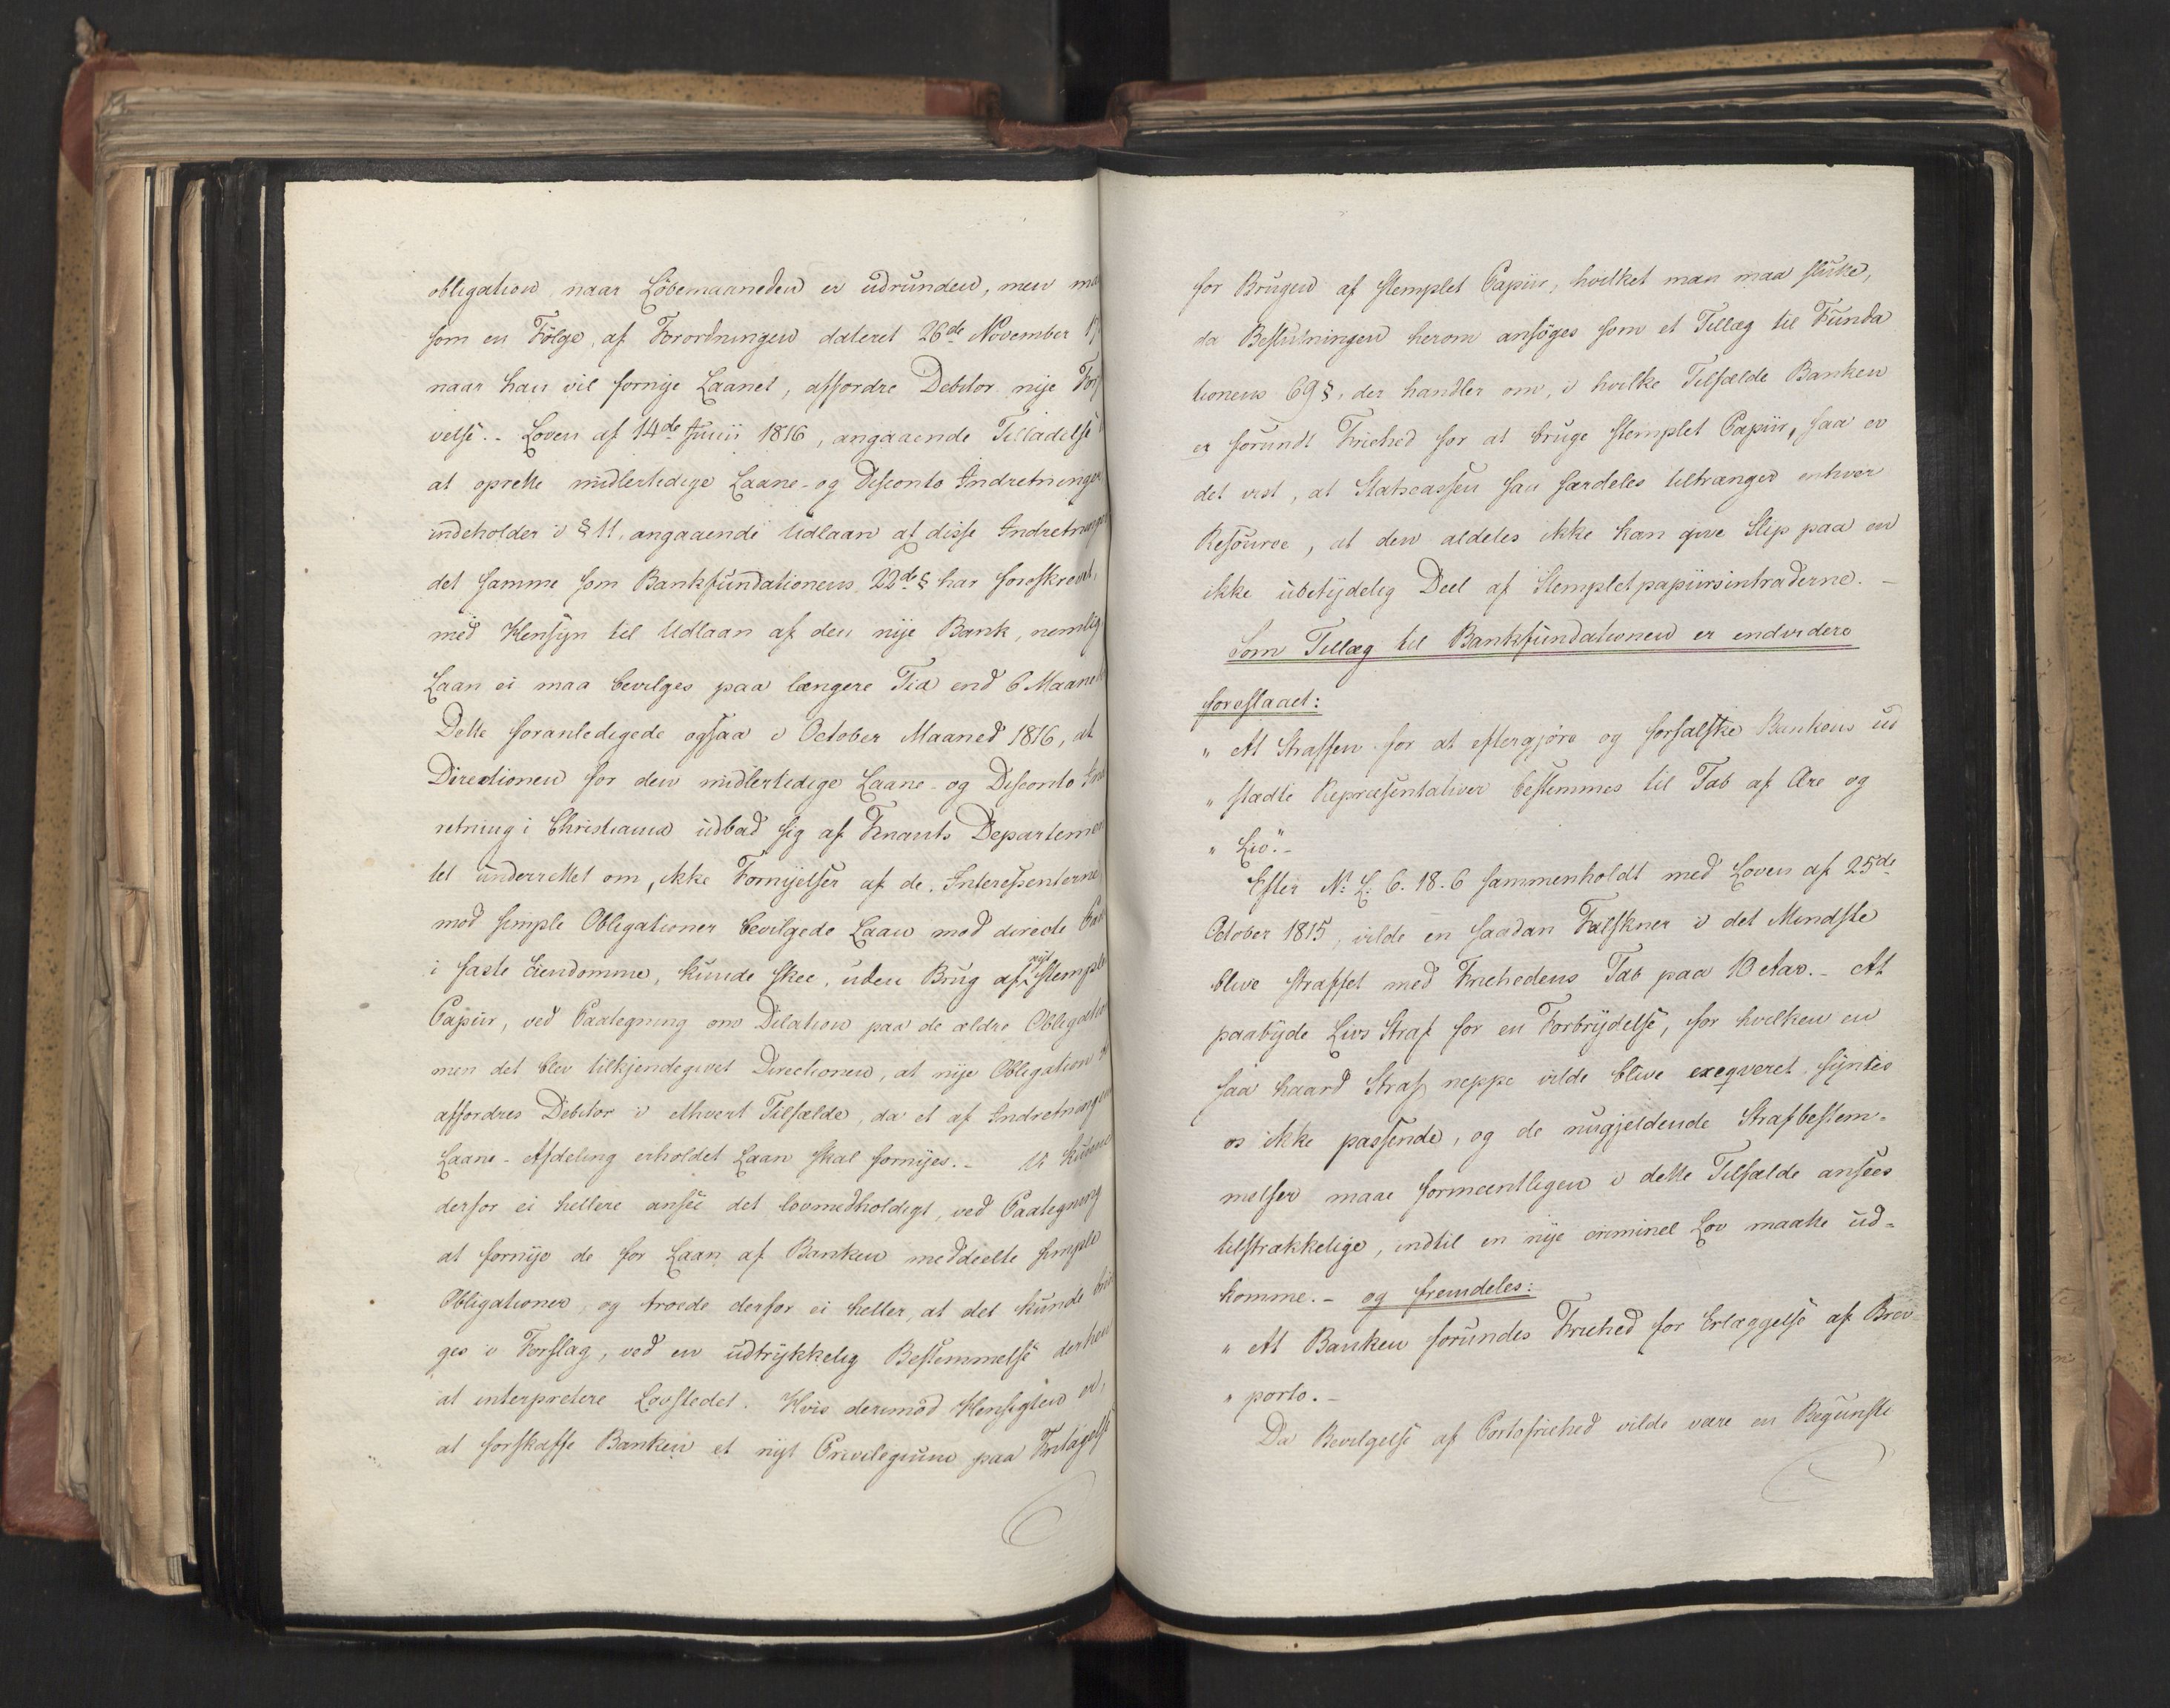 obligation naar Löbemaaneden er udrunden, men maa
som en Fölge af Forordningen dateret 26de November
naar han vil fornÿe Laanet, affordre Debitor nÿe
velse. - Loven af 14de Junii 1816, angaaende Tilladelse
at oprette midlertidige Laane- og Disconto Indretninger
indeholder i § 11, angaaende Udlaan af disse Indretninger
det samme som Bankfundationens 22de § har foreskrevet,
med Hensÿn til Udlaan af den nÿe Bank, nemlig
Laan ei maa bevilges paa længere Tid end 6 Maaneder
Dette foranledigede ogsaa i October Maaned 1816, at
Directionen for den midlertidige Laane- og Disconto Ind
retning i Christiania udbad sig af Finants Departemen
tet underrettet om, ikke Fornÿelser af de Interessenterne
mod simple Obligationer bevilgede Laan mod directe
i faste Eiendomme, kunde skee, uden Brug af nÿt stemplet
Papiir, ved Paategning om Dilation paa de ældre Obligation
men det blev tilkjendegivet Directionen, at nÿe Obligation
affordres Debitor i ethvert Tilfælde, da et af Indretningens
Laane-Afdeling erholdet Laan skal fornÿes. - Vi kunne
derfor ei hellere ansee det lovmedholdigt, ved Paategning
at fornÿe de for Laan af Banken meddeelte simple
Obligationer, og troede derfor ei heller, at det kunde brin
ges i Forslag, ved en udtrÿkkelig Bestemmelse derhen
at interpretere Lovstedet. Hvis derimod Hensigten er,
at forskaffe Banken et nÿt Privilegium paa Fritagelse
for Brugen af stemplet Papiir, hvilket man maa slutte,
da Beslutningen herom ansöges som et Tillæg til Funda
tionens 69 §, der handler om, i hvilke Tilfælde Banken
er forundt Friehed for at bruge stemplet Papiir, saa er
det vist, at Statscassen saa særdeles tiltrænger enhver
Resource, at den aldeles ikke kan give Slip paa en
ikke ubetÿdelig Deel af Stempletpapiirsintraderne. -
Som Tillæg til Bankfundationen er endvidere
foreslaaet:
„ At Straffen for at eftergjöre og forfalske Bankens ud
„ stædte Repræsentativer bestemmes til Tab af Ære og
„ Liv." -
Efter N: L: 6. 18. 6 sammenholdt med Loven af 25de
October 1815, vilde en saadan Falskner i det Mindste
blive straffet med Friehedens Tab paa 10 Aar. - At
paabÿde Livs Straf for en Forbrÿdelse, for hvilken en
saa haard Straf neppe vilde blive exeqveret sÿntes
os ikke passende, og de nugjeldende Strafbestem-
melser maae formeentligen i dette Tilfælde ansees
tilstrækkelige, indtil en nÿe criminel Lov maatte ud-
komme. - og fremdeles:
„ At Banken forundes Friehed for Erlæggelse af Brev
„ porto. -
Da Bevilgelse af Portofriehed vilde være en Begunsti